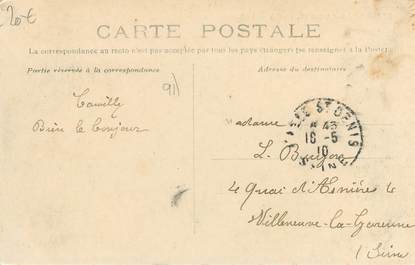 20€
CARTE POSTALE
La correspondance au recto n'est pas acceptée par tous les pays étrangers (se renseigner à la Poste)
Partie réservée à la correspondance
Adresse du destinataire
91)
Bien le bonjour
Madame
ST DENIS
16 - 5
10
SEINE
4 Quai d'Asnières
Villeneuve-la-Garenne
Seine